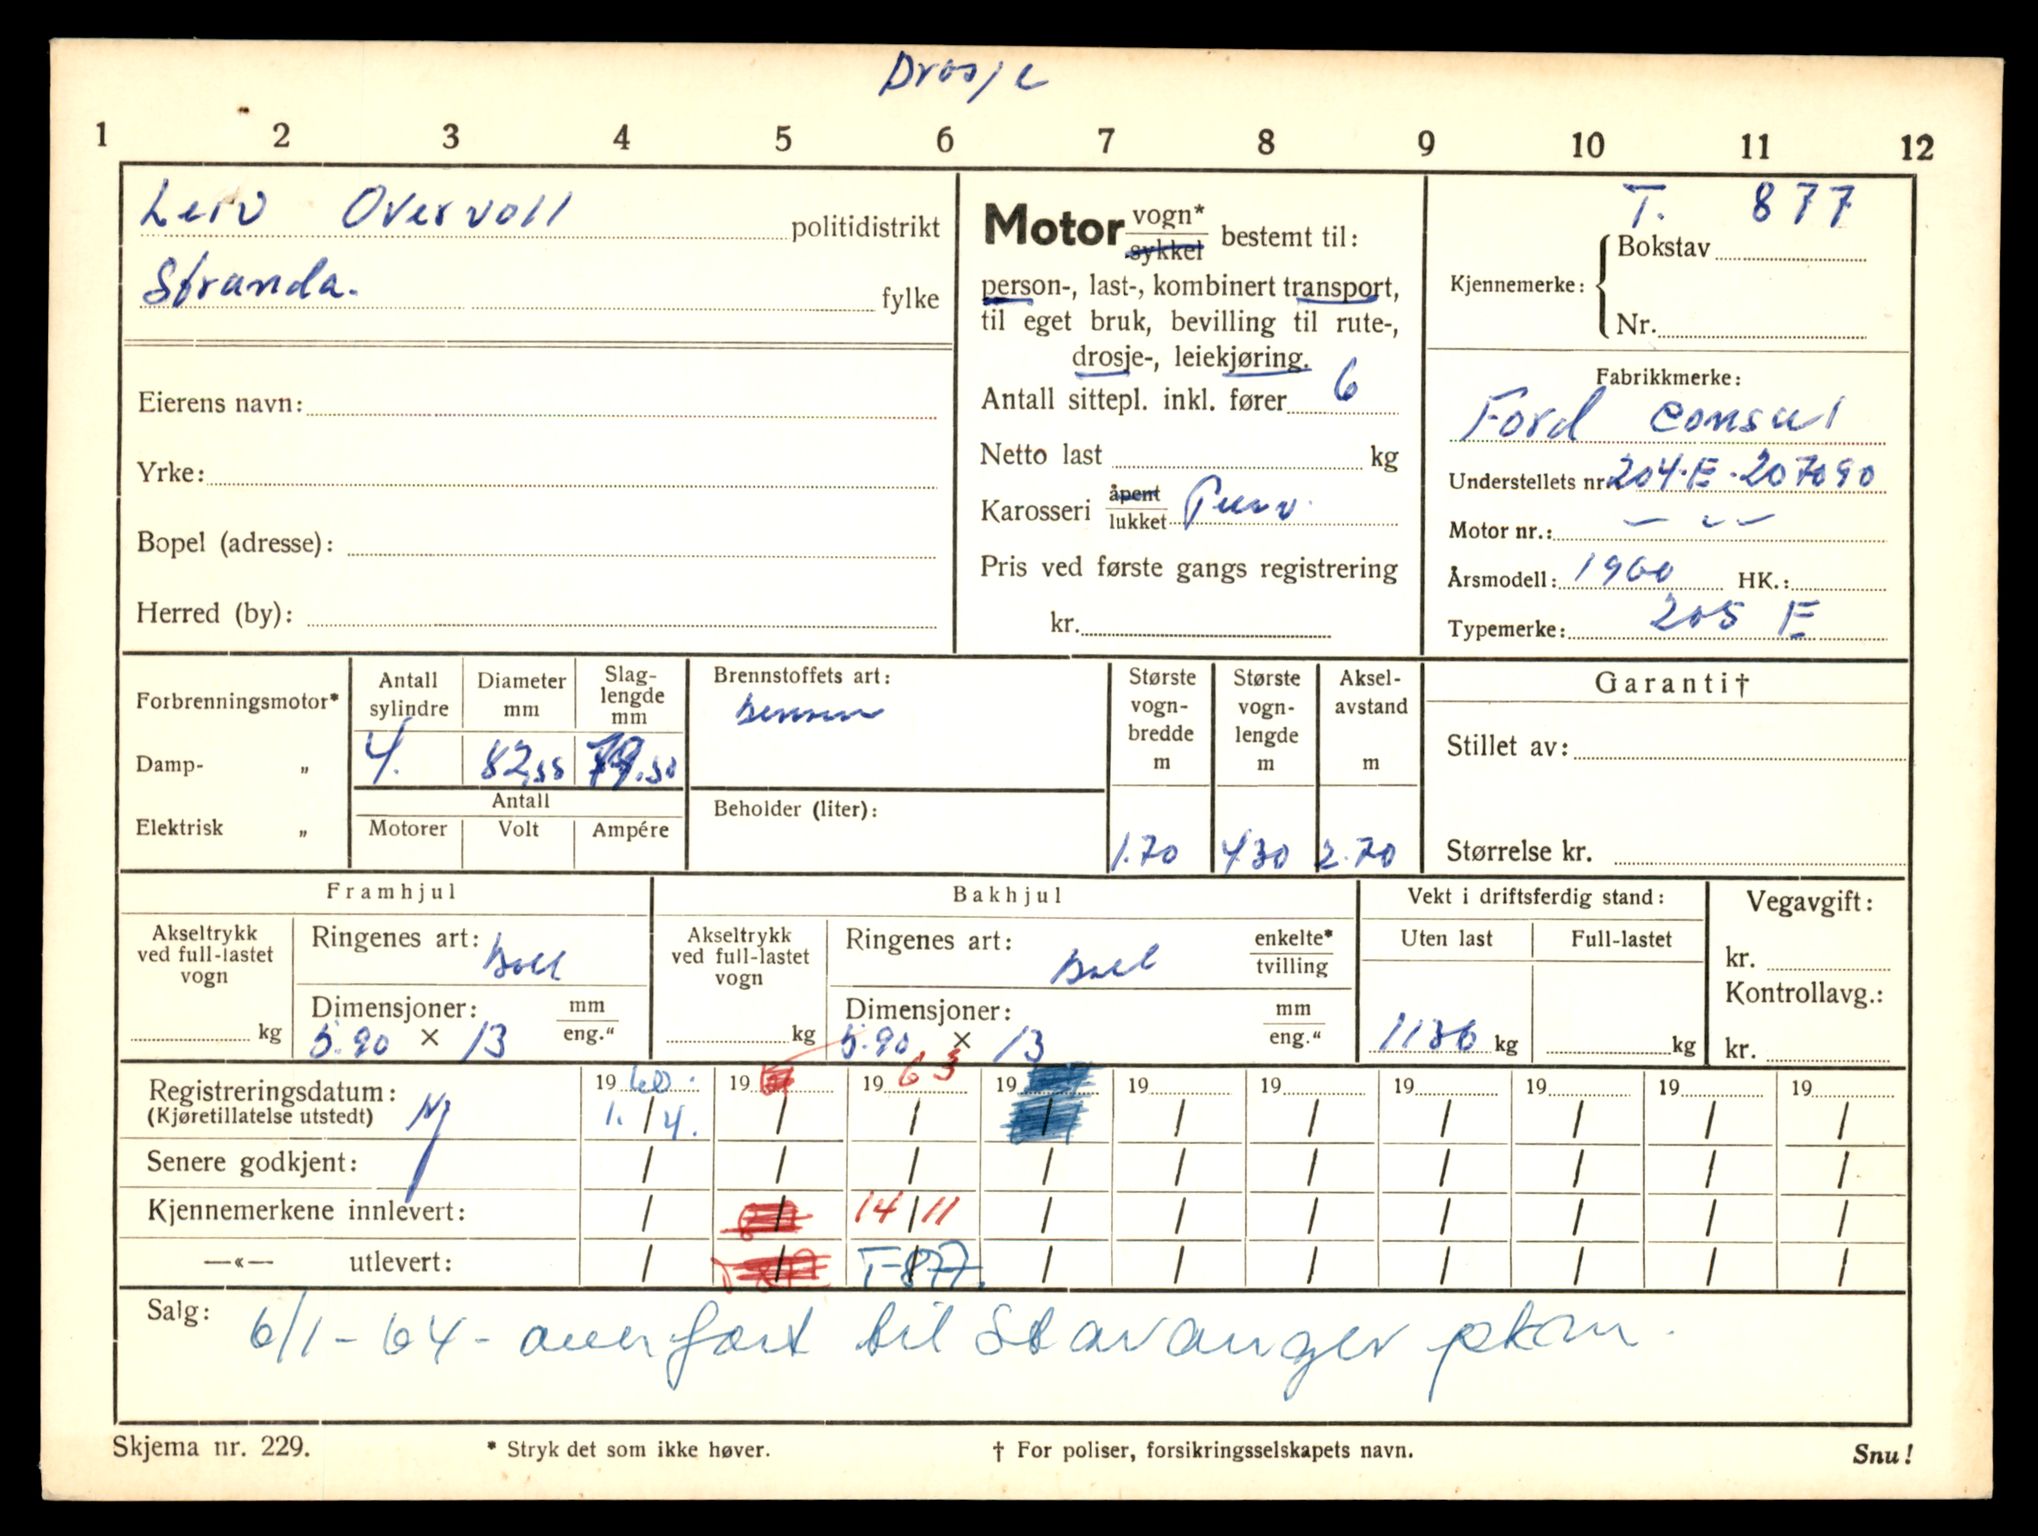 Drosje
1 2 3 4 5 6 7 8 9 10 11 12
Leiv Overvoll politidistrikt
Stranda. fylke
Eierens navn:
Yrke:
Bopel (adresse):
Herred (by):
Motor vogn* sykkel bestemt til:
person-, last-, kombinert transport,
til eget bruk, bevilling til rute-,
drosje-, leiekjøring.
Antall sittepl. inkl. fører 6
Netto last kg
Karosseri åpent lukket
Pris ved første gangs registrering
kr.
T. 877
Kjennemerke: Bokstav
Nr.
Fabrikkmerke:
Ford Consul
Understellets nr. 204.E.207090
Motor nr.: — 〃 —
Årsmodell: 1960 HK.:
Typemerke: 205 E
Forbrenningsmotor*
Damp- „
Elektrisk „
Antall sylindre Diameter mm Slag-lengde mm
4. 82,55 79.50
Antall
Motorer Volt Ampére
Brennstoffets art:
Bensin
Beholder (liter):
Største vogn-bredde m Største vogn-lengde m Aksel-avstand m
1.70 4.30 2.70
Garanti†
Stillet av:
Størrelse kr.
Framhjul
Akseltrykk ved full-lastet vogn
kg
Ringenes art: Ball
Dimensjoner: mm eng.“
5.90 × 13
Bakhjul
Akseltrykk ved full-lastet vogn
kg
Ringenes art: Ball enkelte* tvilling
Dimensjoner: mm eng.“
5.90 × 13
Vekt i driftsferdig stand:
Uten last Full-lastet
1136 kg kg
Vegavgift:
kr.
Kontrollavg.:
kr.
Registreringsdatum: 19 60. 19 19 63 19 19 19 19 19 19 19
(Kjøretillatelse utstedt) Ny 1. / 4. / / / / / / / / /
Senere godkjent: / / / / / / / / / /
Kjennemerkene innlevert: / / 14 / 11 / / / / / / /
—«— utlevert: / / T-877. / / / / / / /
Salg: 6/1-64- overført til Stavanger pkm.
Skjema nr. 229. * Stryk det som ikke høver. † For poliser, forsikringsselskapets navn. Snu!